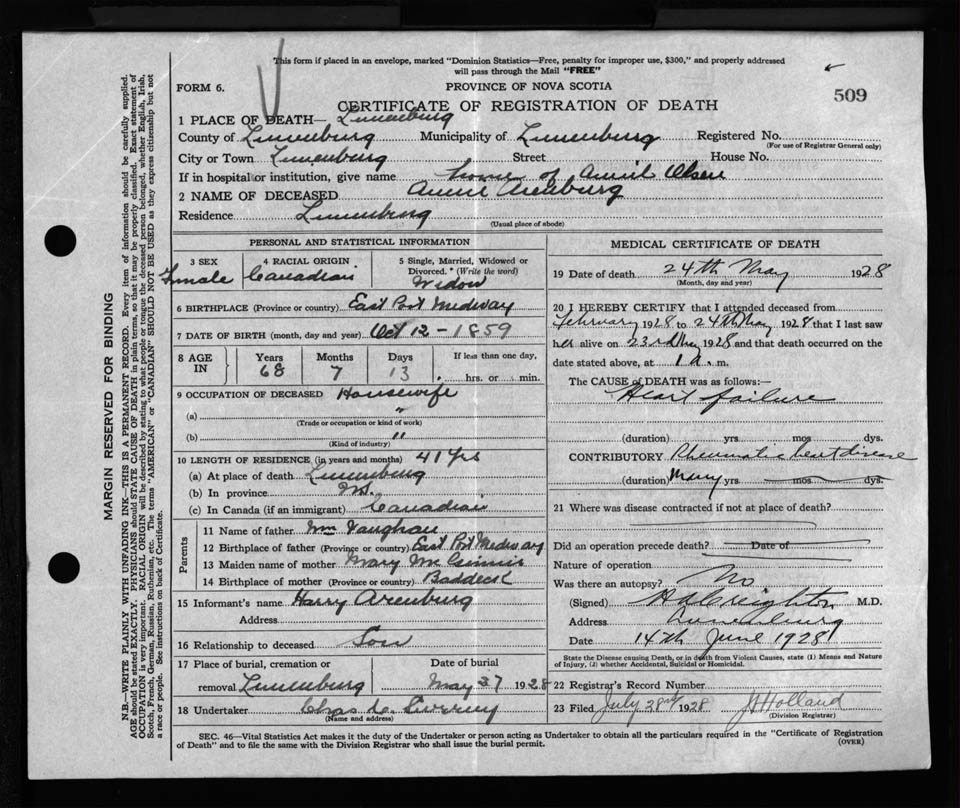 This form if placed in an envelope, marked "Dominion Statistics—Free, penalty for improper use, $300," and properly addressed
will pass through the Mail "FREE"
FORM 6.
PROVINCE OF NOVA SCOTIA
509
CERTIFICATE OF REGISTRATION OF DEATH
1 PLACE OF DEATH— Lunenburg
County of Lunenburg Municipality of Lunenburg Registered No.
(For use of Registrar General only)
City or Town Lunenburg Street House No.
If in hospital or institution, give name home of Olsen
2 NAME OF DECEASED Annie Arenburg
Residence Lunenburg
(Usual place of abode)
PERSONAL AND STATISTICAL INFORMATION
3 SEX Female
4 RACIAL ORIGIN Canadian
5 Single, Married, Widowed or
Divorced. * (Write the word)
Widow
6 BIRTHPLACE (Province or country) East Port Medway
7 DATE OF BIRTH (month, day and year) Oct 12 - 1859
8 AGE IN Years Months Days If less than one day,
68 7 13 hrs. or min.
9 OCCUPATION OF DECEASED Housewife
(a) "
(Trade or occupation or kind of work)
(b) "
(Kind of industry)
10 LENGTH OF RESIDENCE (in years and months) 41 Yrs
(a) At place of death Lunenburg
(b) In province
(c) In Canada (if an immigrant) Canadian
Parents
11 Name of father Wm Vaughan
12 Birthplace of father (Province or country) East Port Medway
13 Maiden name of mother Mary
14 Birthplace of mother (Province or country) Baddeck
15 Informant's name Harry Arenburg
Address
16 Relationship to deceased Son
17 Place of burial, cremation or
removal Lunenburg
Date of burial
May 27 1928
18 Undertaker Chas
(Name and address)
MEDICAL CERTIFICATE OF DEATH
19 Date of death 24th May 1928
(Month, day and year)
20 I HEREBY CERTIFY that I attended deceased from
February 1928 to 24th May 1928 that I last saw
her alive on 23rd May 1928 and that death occurred on the
date stated above, at 1 a. m.
The CAUSE OF DEATH was as follows:—
Heart failure
(duration) yrs mos dys.
CONTRIBUTORY Rheumatic heart disease
(duration) Many yrs mos dys.
21 Where was disease contracted if not at place of death?
Did an operation precede death? Date of
Nature of operation
Was there an autopsy? No
(Signed) Creighton M.D.
Address Lunenburg
Date 14th June 1928
State the Disease causing Death, or in death from Violent Causes, state (1) Means and Nature
of Injury, (2) whether Accidental, Suicidal or Homicidal.
22 Registrar's Record Number
23 Filed July 1928 Holland
(Division Registrar)
SEC. 46—Vital Statistics Act makes it the duty of the Undertaker or person acting as Undertaker to obtain all the particulars required in the "Certificate of Registration
of Death" and to file the same with the Division Registrar who shall issue the burial permit.
(OVER)
MARGIN RESERVED FOR BINDING
N.B.—WRITE PLAINLY WITH UNFADING INK—THIS IS A PERMANENT RECORD. Every item of information should be carefully supplied.
AGE should be stated EXACTLY. PHYSICIANS should STATE CAUSE OF DEATH in plain terms, so that it may be properly classified. Exact statement of
OCCUPATION is very important. RACIAL ORIGIN will be described by stating to what people or tongue the deceased person belonged, whether English, Irish,
Scotch, French, German, Russian, Ruthenian, etc. The terms "AMERICAN" or "CANADIAN" SHOULD NOT BE USED as they express citizenship but not
a race or people. See instructions on back of Certificate.